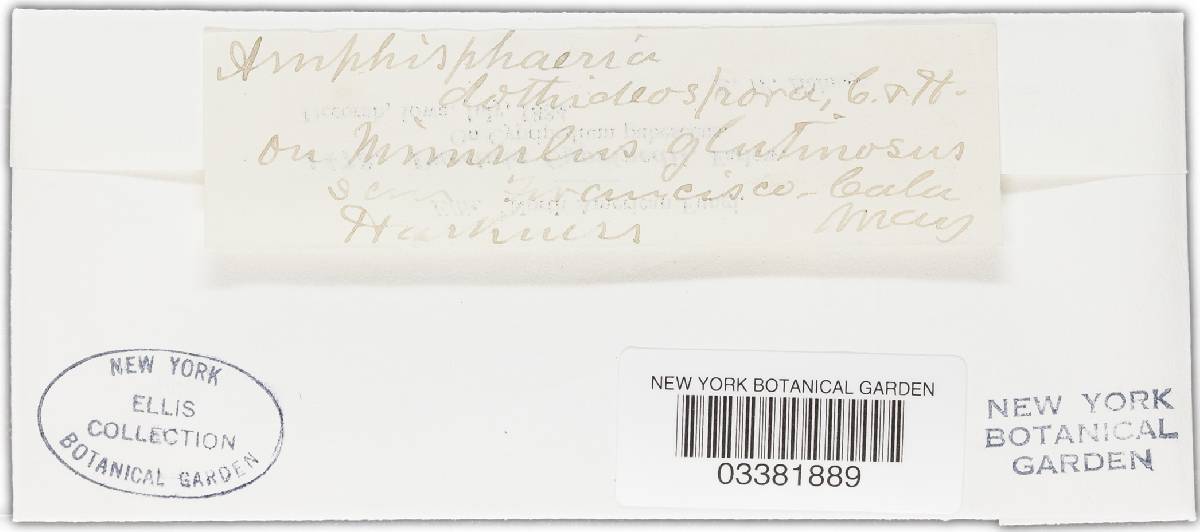 Amphisphaeria
dothideospora, C. & H.
on Mimulus glutinosus
San Francisco - Cala
Harkness May
NEW YORK
ELLIS
COLLECTION
BOTANICAL GARDEN
NEW YORK BOTANICAL GARDEN
03381889
NEW YORK
BOTANICAL
GARDEN